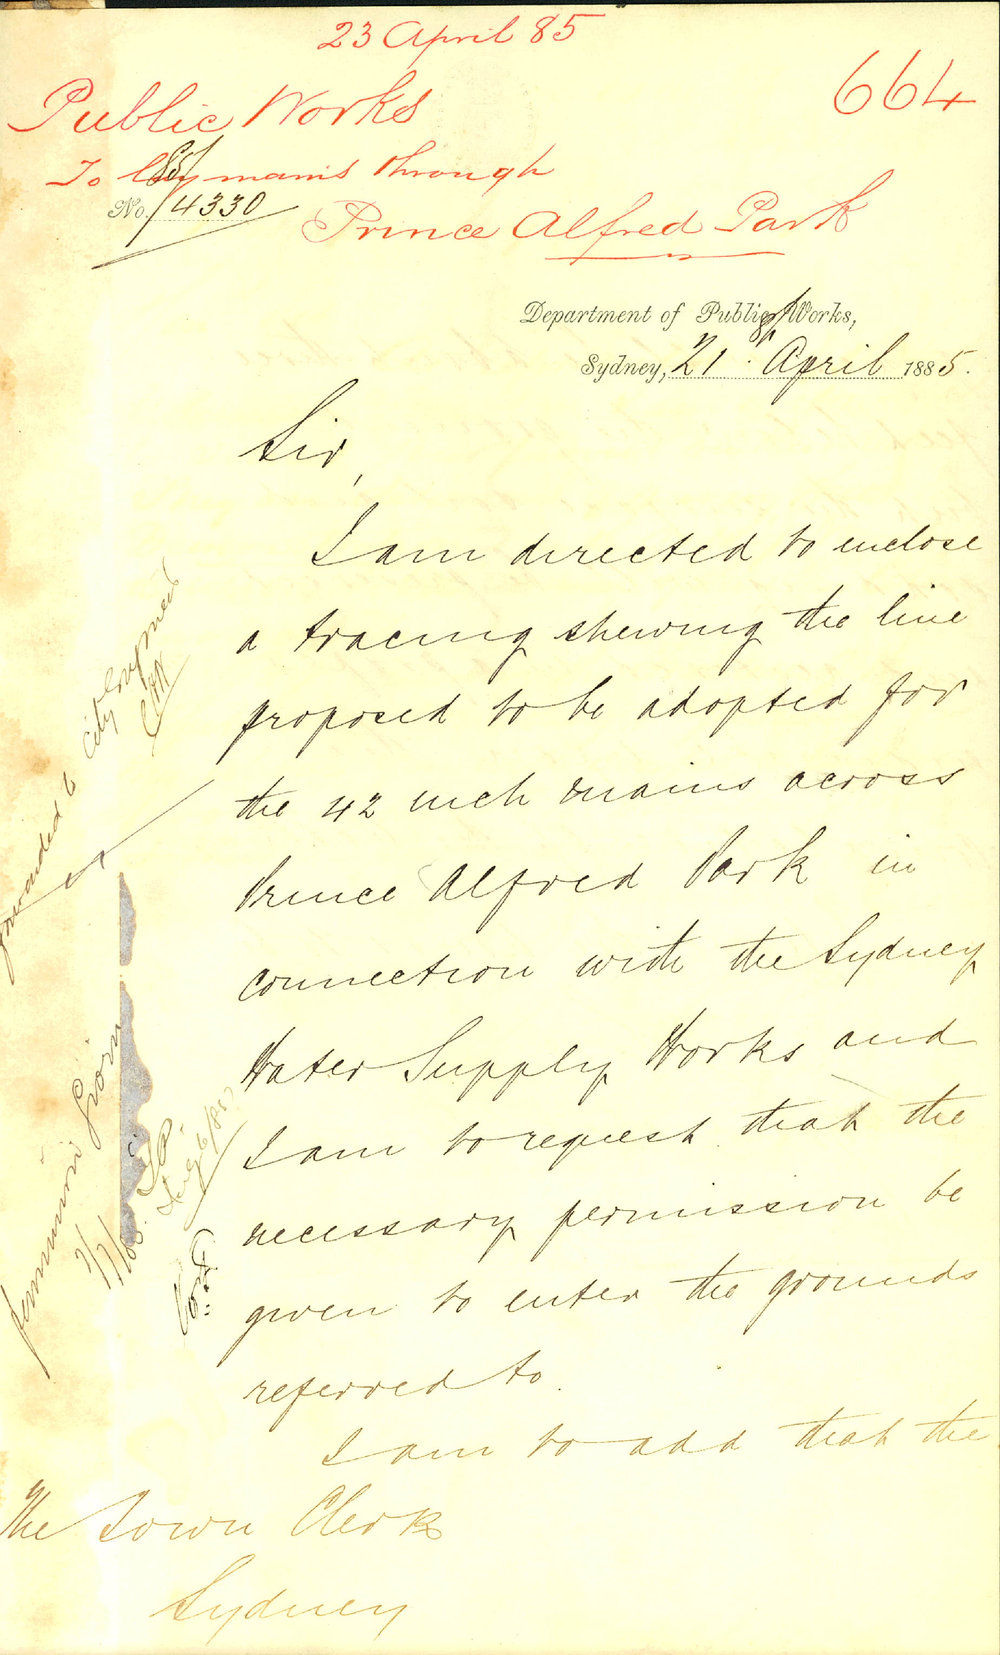 23 April 85
664
Public Works
To lay mains through
Prince Alfred Park
No. 85/4330
Department of Public Works,
Sydney, 21 April 1885.
Sir,
I am directed to enclose
a tracing shewing the line
proposed to be adopted for
the 42 inch mains across
Prince Alfred Park in
connection with the Sydney
Water Supply Works and
I am to request that the
necessary permission be
given to enter the grounds
referred to.
I am to add that the
The Town Clerk
Sydney
forwarded to City
permission given